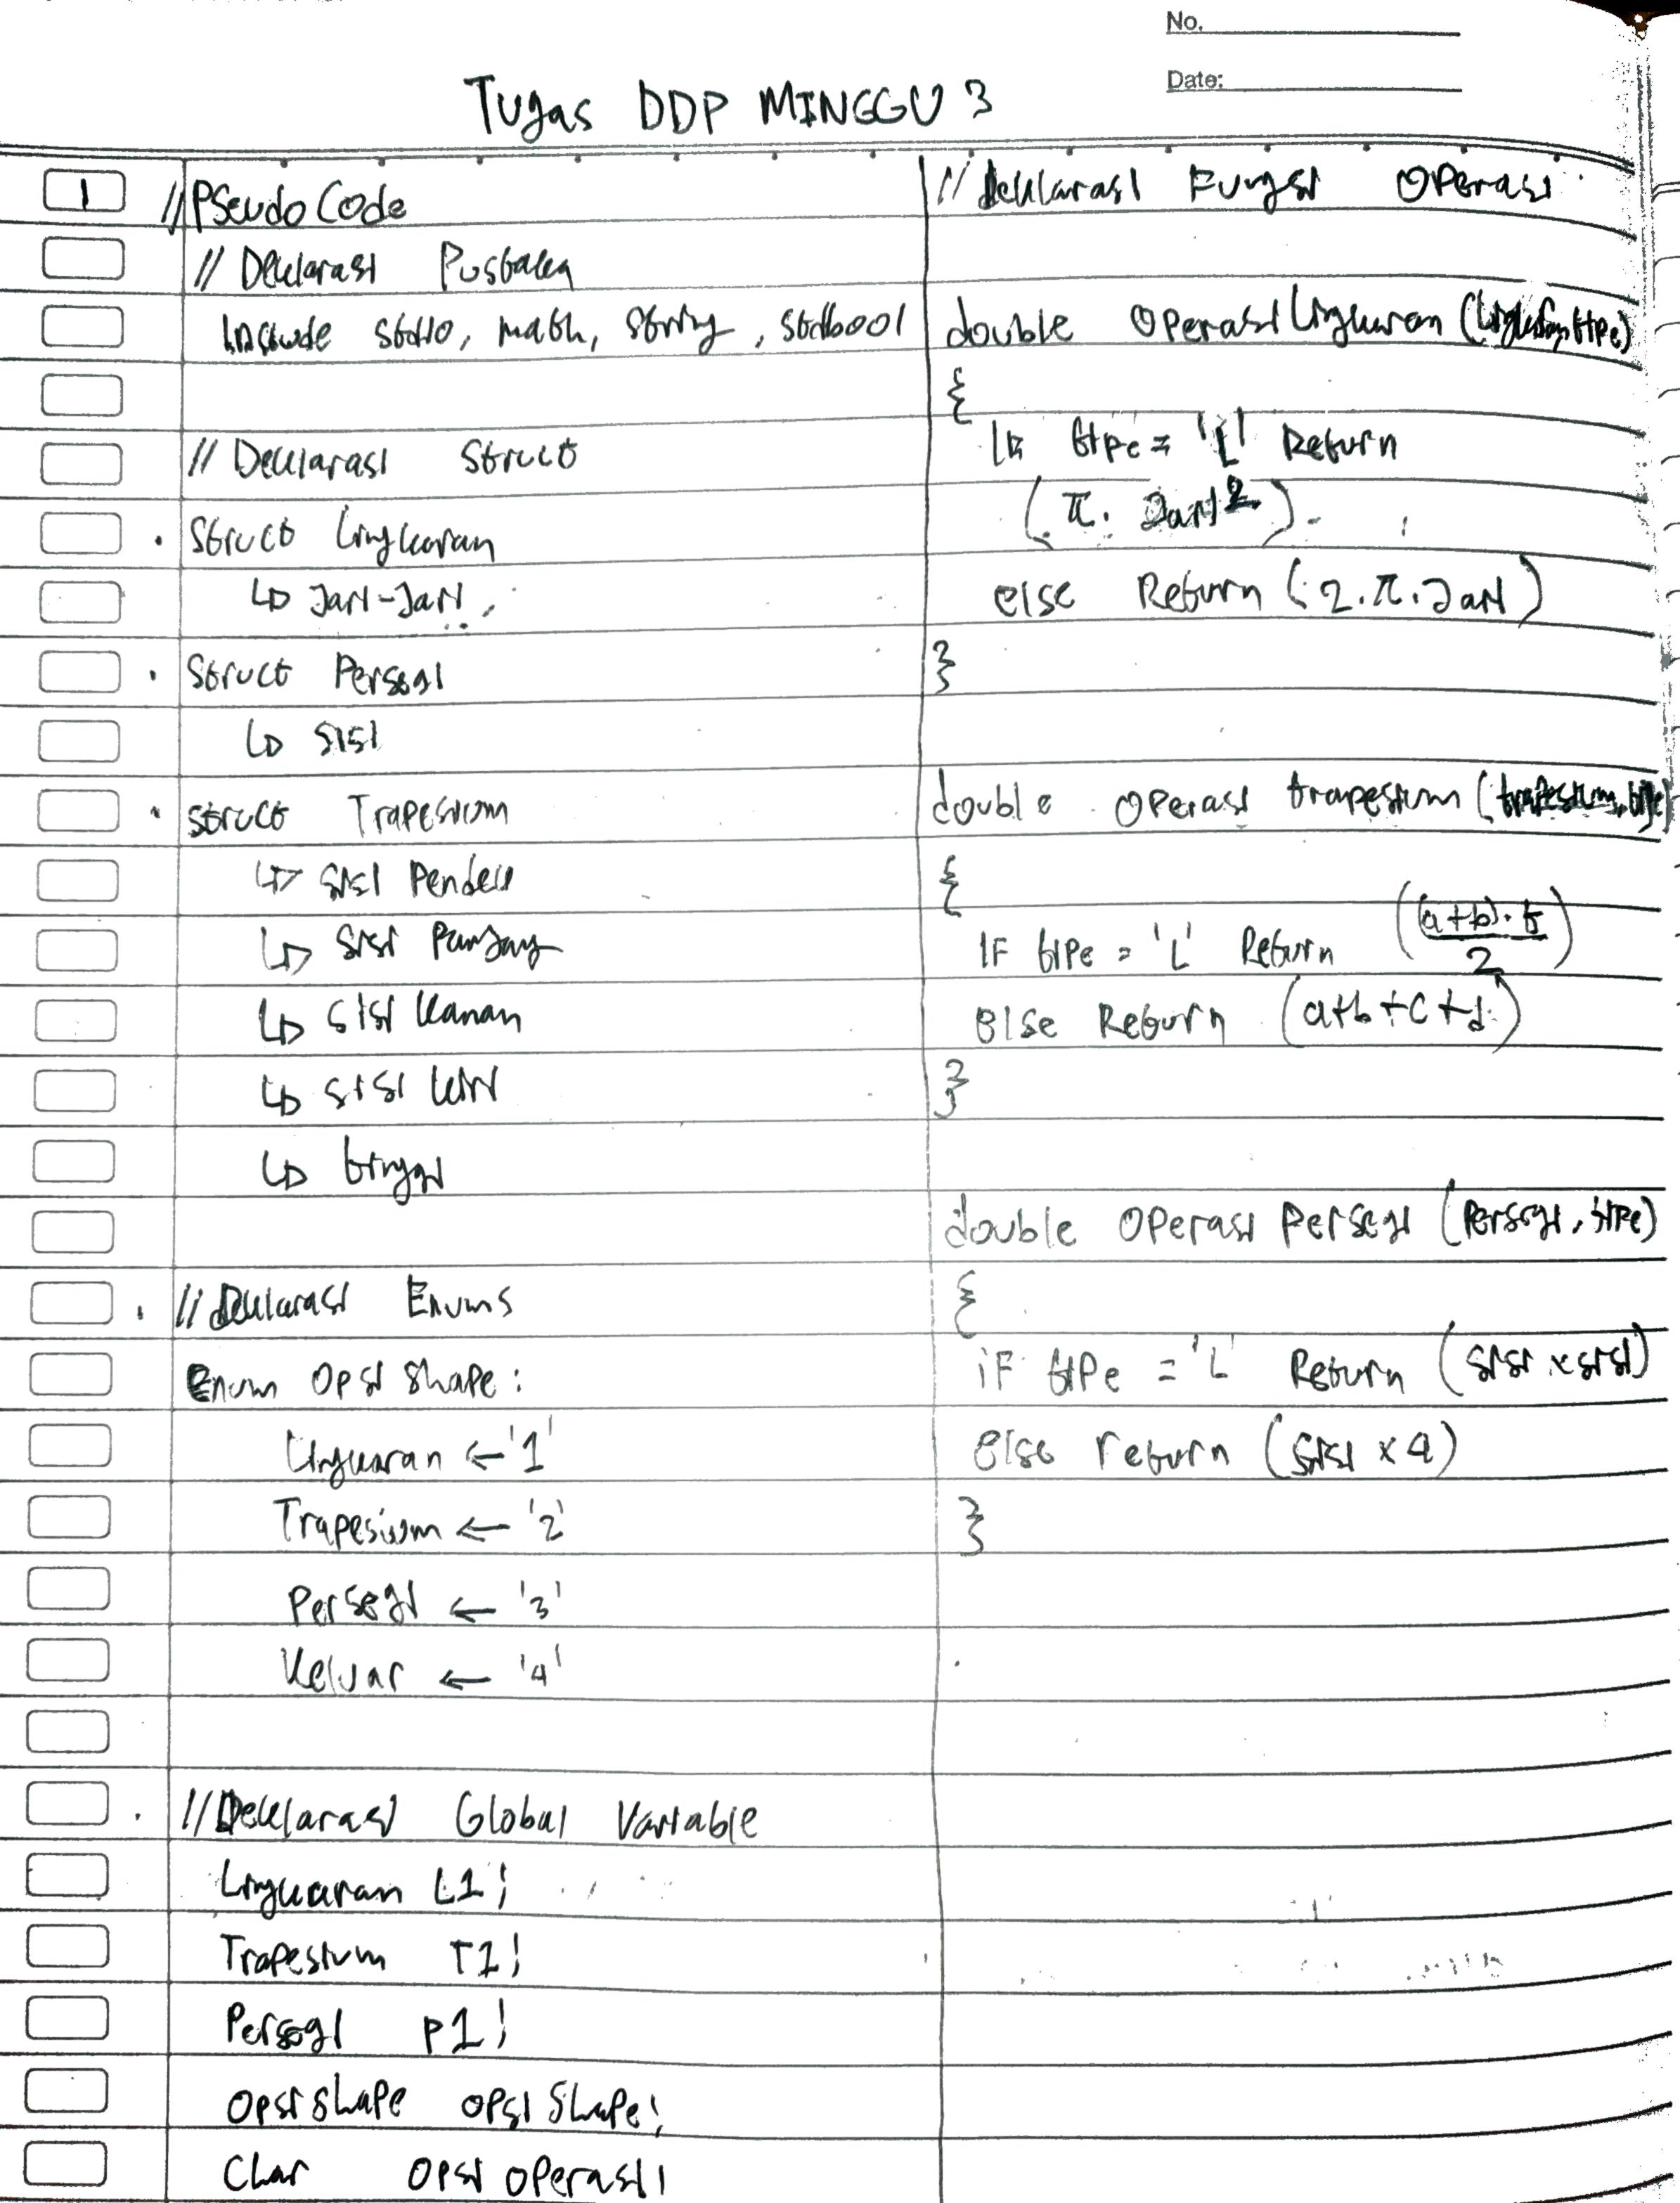 No.
Date:
Tugas DDP MINGGU 3
1
// Pseudo Code
// Deklarasi Pustaka
Include stdio, math, string, stdbool
// Deklarasi Struct
• Struct Lingkaran
↳ Jari-Jari
• Struct Persegi
↳ sisi
• struct Trapesium
↳ sisi Pendek
↳ sisi Panjang
↳ sisi kanan
↳ sisi kiri
↳ tinggi
• // Deklarasi Enums
Enum Opsi Shape :
Lingkaran ← '1'
Trapesium ← '2'
Persegi ← '3'
Keluar ← '4'
• // Deklarasi Global Variable
Lingkaran L1;
Trapesium T1;
Persegi P1;
Opsi Shape opsi Shape;
Char Opsi Operasi;
// Deklarasi Fungsi Operasi
double Operasi Lingkaran (Lingkaran, tipe)
{
If tipe = 'L' Return
(π . Jari²)
else Return (2.π.Jari)
}
double Operasi trapesium (trapesium, tipe)
{
IF tipe = 'L' Return ((a+b).t/2)
else Return (a+b+c+d)
}
double Operasi Persegi (Persegi, tipe)
{
if tipe = 'L' Return (sisi x sisi)
else return (sisi x 4)
}